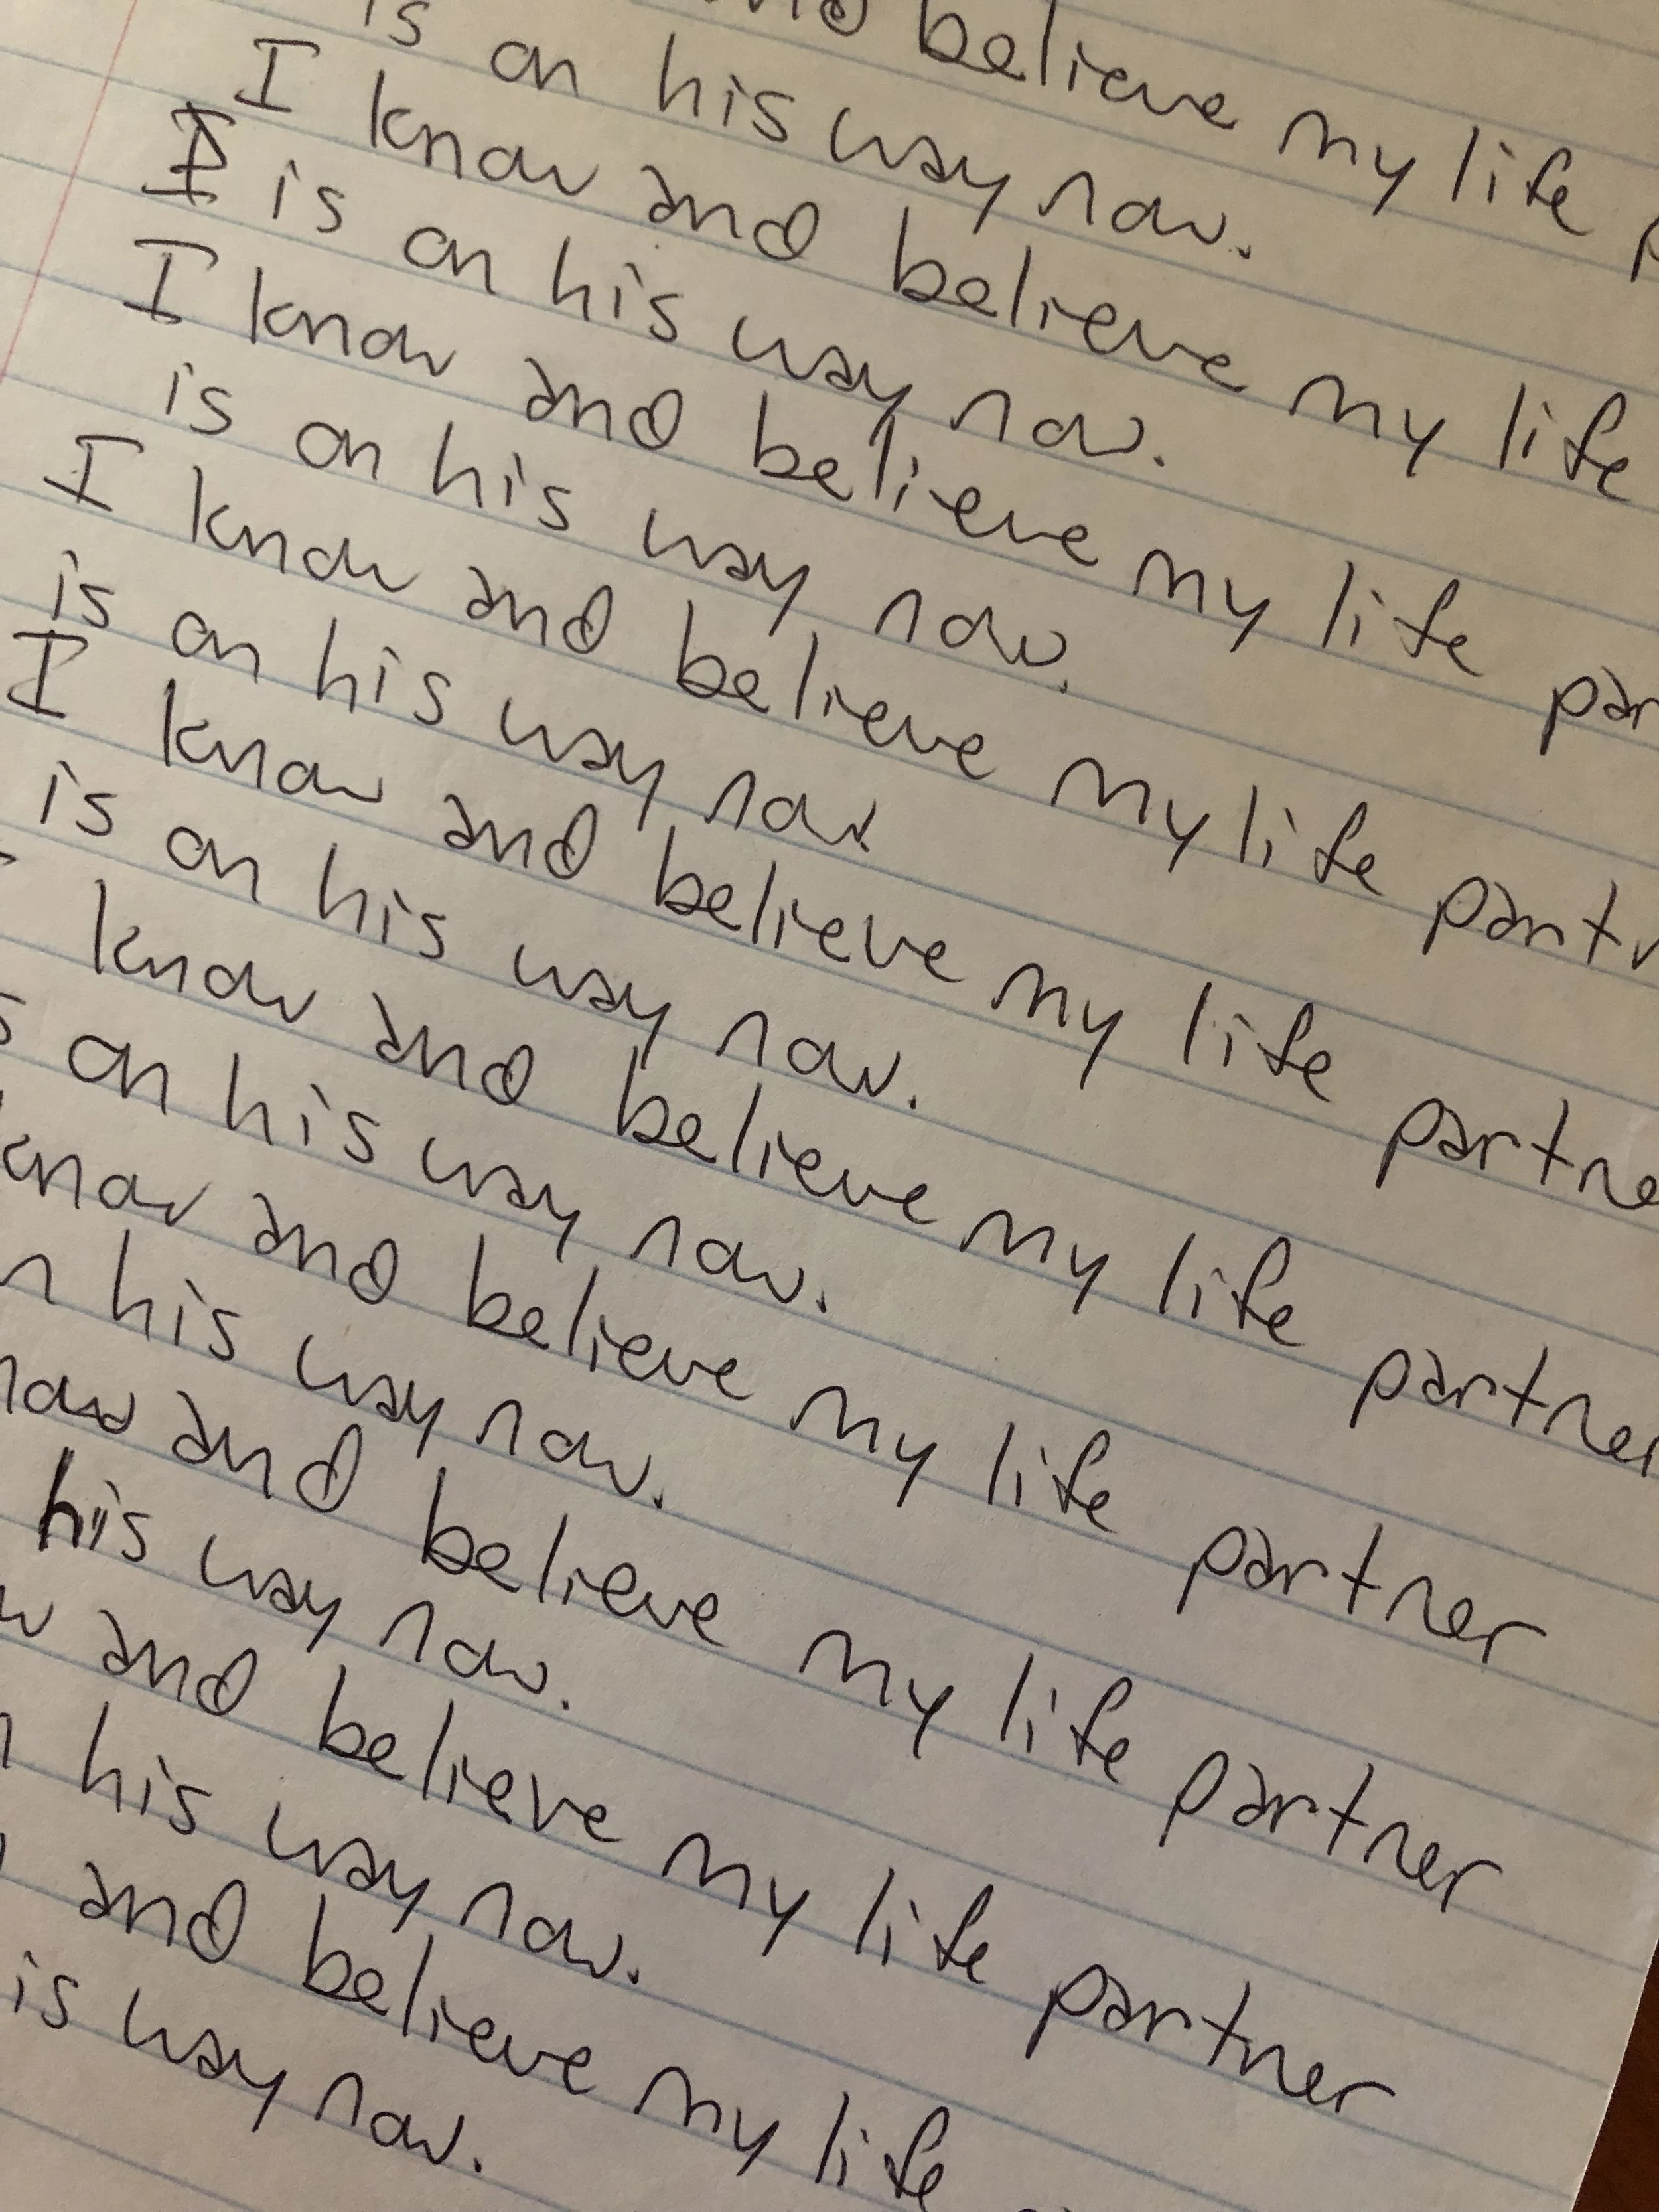 believe my life
is on his way now.
I know and believe my life
is on his way now.
I know and believe my life
is on his way now.
I know and believe my life
is on his way now
I know and believe my life partne
is on his way now.
know and believe my life partner
on his way now.
know and believe my life partner
his way now.
and believe my life partner
his way now.
and believe my life partner
his way now.
and believe my life
is way now.